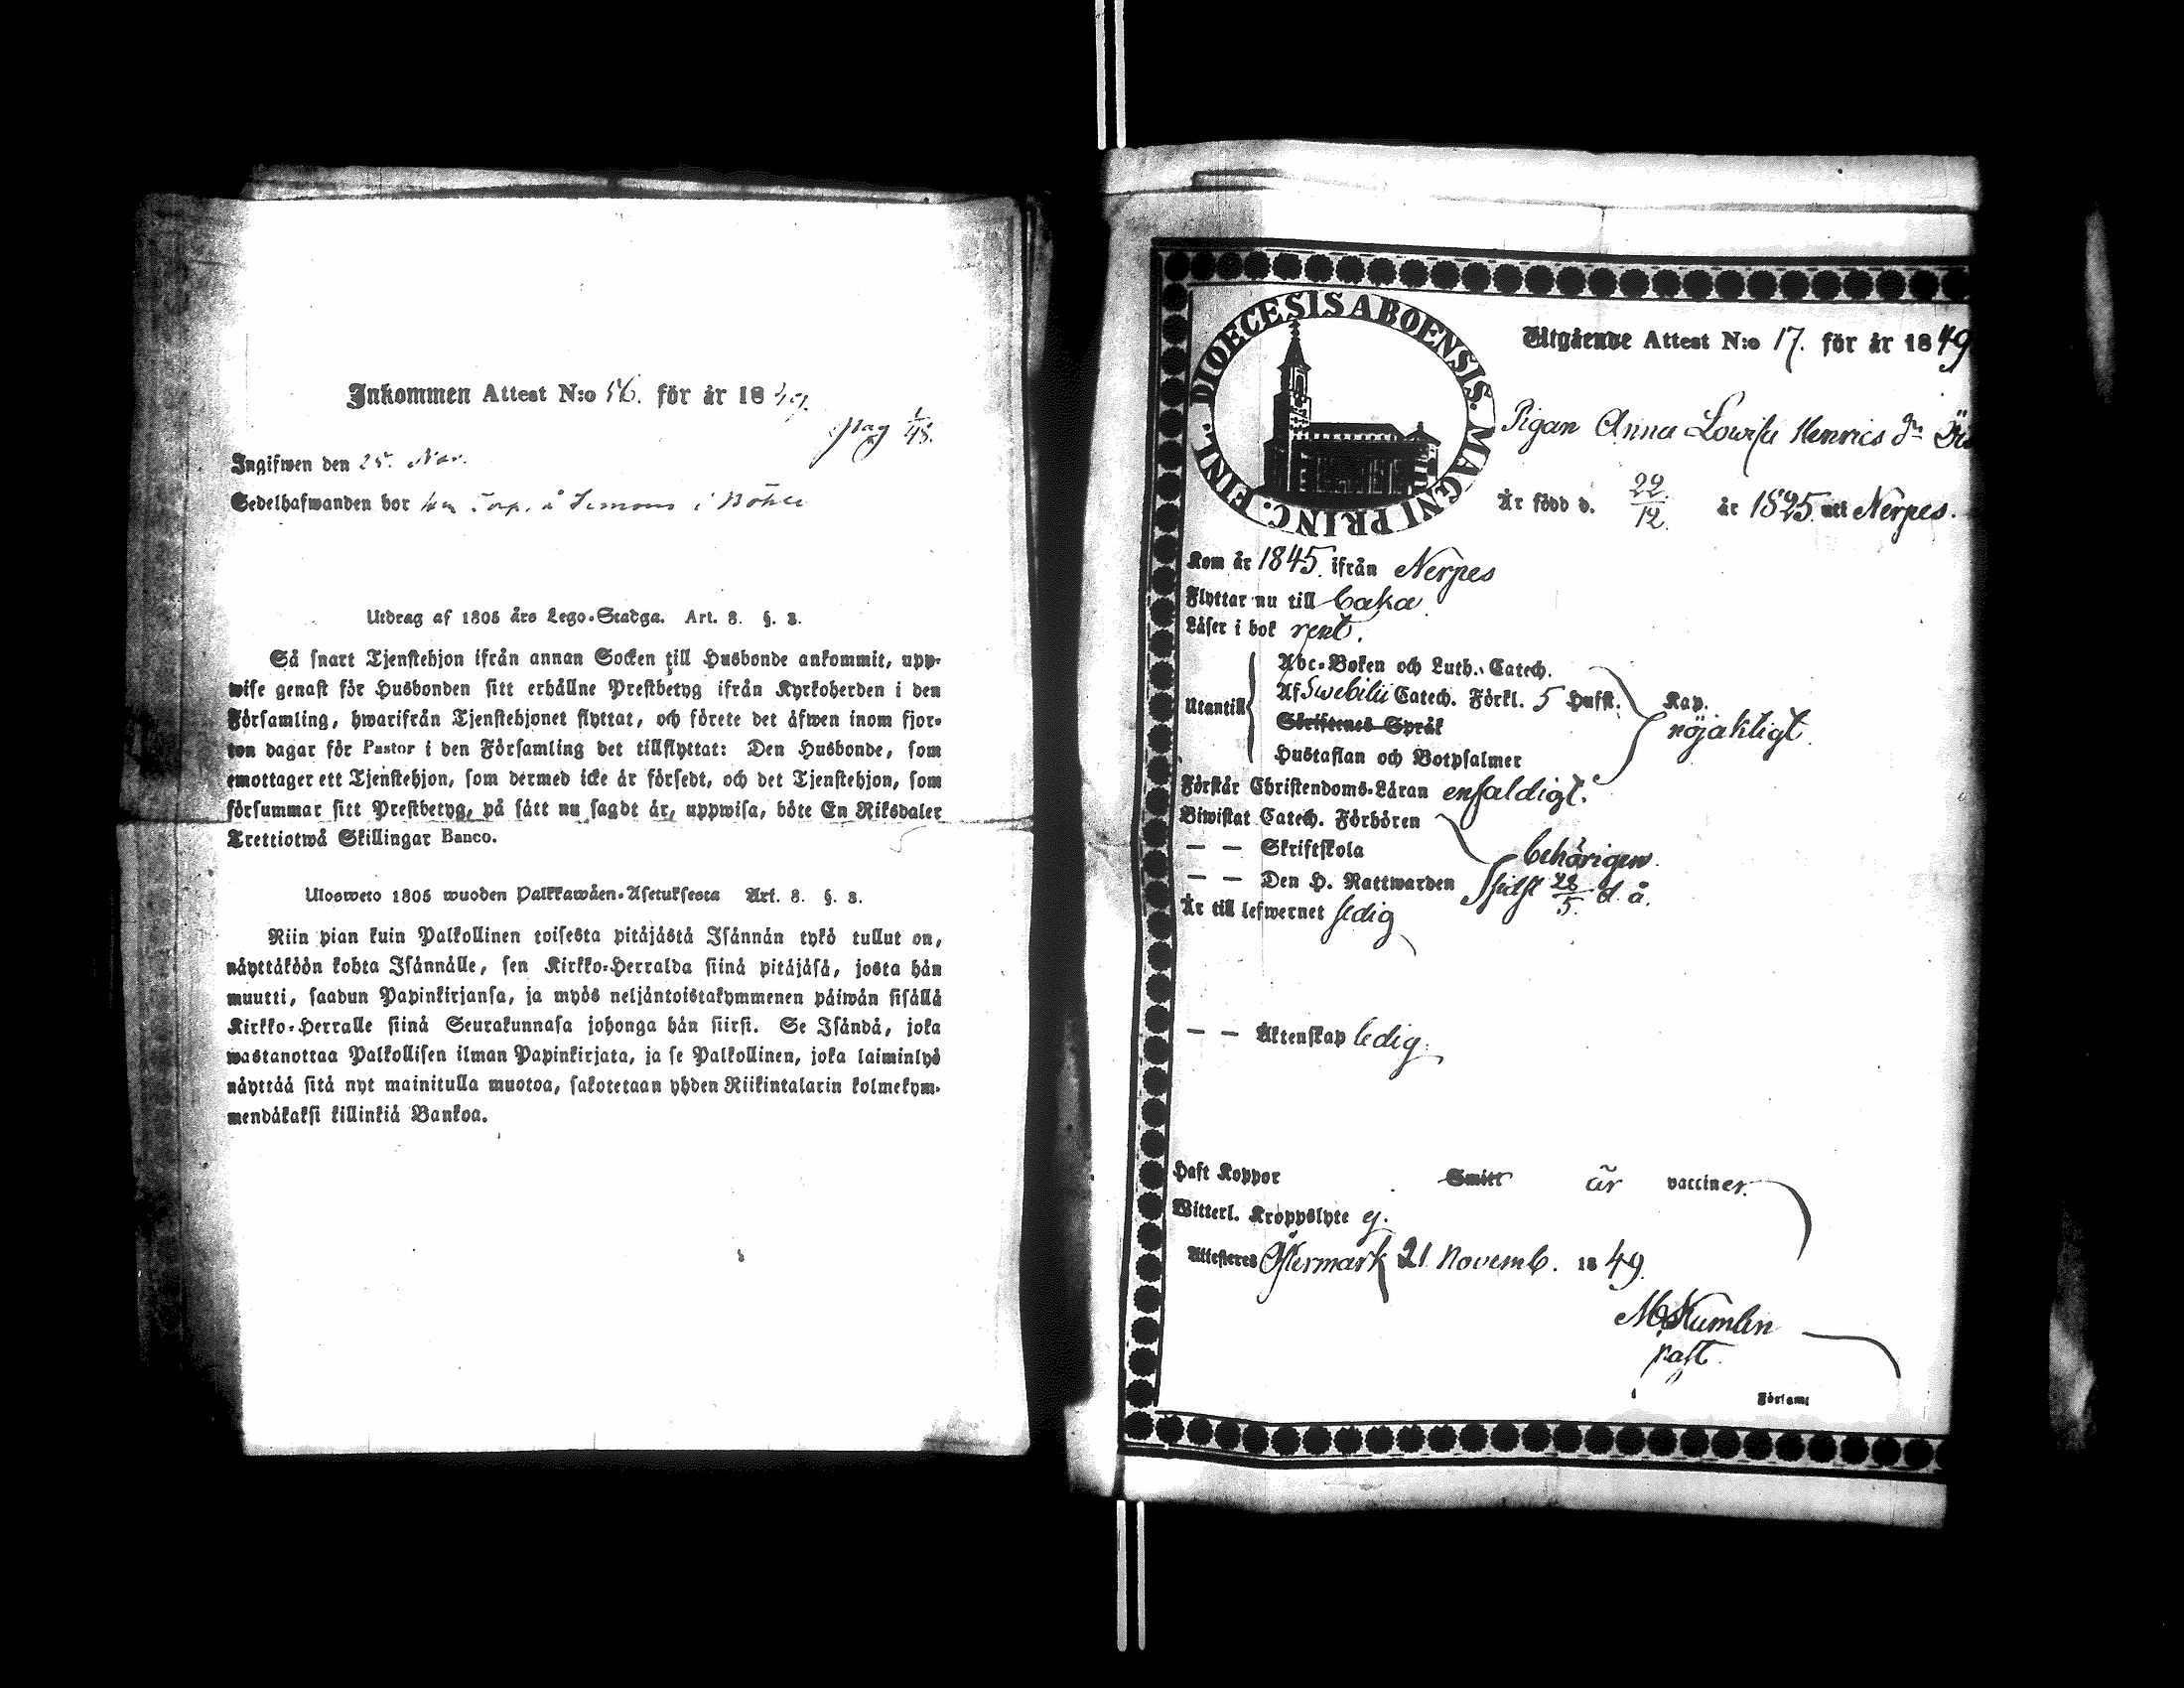 Inkommen Attest N:o 56. för år 1849.
pag 1/48.
Ingifwen den 25. Nov.
Sedelhafwanden bor hos Torp. å Simons i Böhle
Utdrag af 1805 års Lego-Stadga. Art. 8. §. 3.
Så snart Tjenstehjon ifrån annan Socken till Husbonde ankommit, upp-
wise genast för Husbonden sitt erhållne Prestbetyg ifrån Kyrkoherden i den
Församling, hwarifrån Tjenstehjonet flyttat, och förete det äfwen inom fjor-
ton dagar för Pastor i den Församling det tillflyttat: Den Husbonde, som
emottager ett Tjenstehjon, som dermed icke är försedt, och det Tjenstehjon, som
försummar sitt Prestbetyg, på sätt nu sagdt är, uppwisa, böte En Riksdaler
Trettiotwå Skillingar Banco.
Ulosweto 1805 wuoden Palkkawäen-Asetuksesta Art. 8. §. 3.
Niin pian kuin Palkollinen toisesta pitäjästä Isännän tykö tullut on,
näyttäköön kohta Isännälle, sen Kirkko-Herralda siinä pitäjäsä, josta hän
muutti, saadun Papinkirjansa, ja myös neljäntoistakymmenen päiwän sisällä
Kirkko-Herralle siinä Seurakunnasa johonga hän siirsi. Se Isändä, joka
wastanottaa Palkollisen ilman Papinkirjata, ja se Palkollinen, joka laiminlyö
näyttää sitä nyt mainitulla muotoa, sakotetaan yhden Riikintalarin kolmekym-
mendäkaksi killinkiä Bankoa.
DIOECESIS ABOENSIS. MAGNI PRINC. FINL.
Utgående Attest N:o 17. för år 1849
Pigan Anna Lowisa Henrics dr
Är född d. 22/12. år 1825. uti Nerpes.
Kom år 1845. ifrån Nerpes
Flyttar nu till Caka
Läser i bok rent.
Utantill
Abc-Boken och Luth. Catech.
Af Swebilii Catech. Förkl. 5 Hufst. Kap.
Skriftenes Språk
nöjaktigt
Hustaflan och Botpsalmer
Förstår Christendoms-Läran enfaldigt.
Biwistat Catech. Förhören
— — Skriftskola
behörigen
— — Den H. Nattwarden sidst 28/5. d. å.
Är till lefwernet ledig
— — Äktenskap ledig.
Haft Koppor Smitt är vacciner.
Witterl. Kroppslyte ej.
Attesteres Östermark 21 Novemb. 1849.
M Kumlin
past.
i Församl